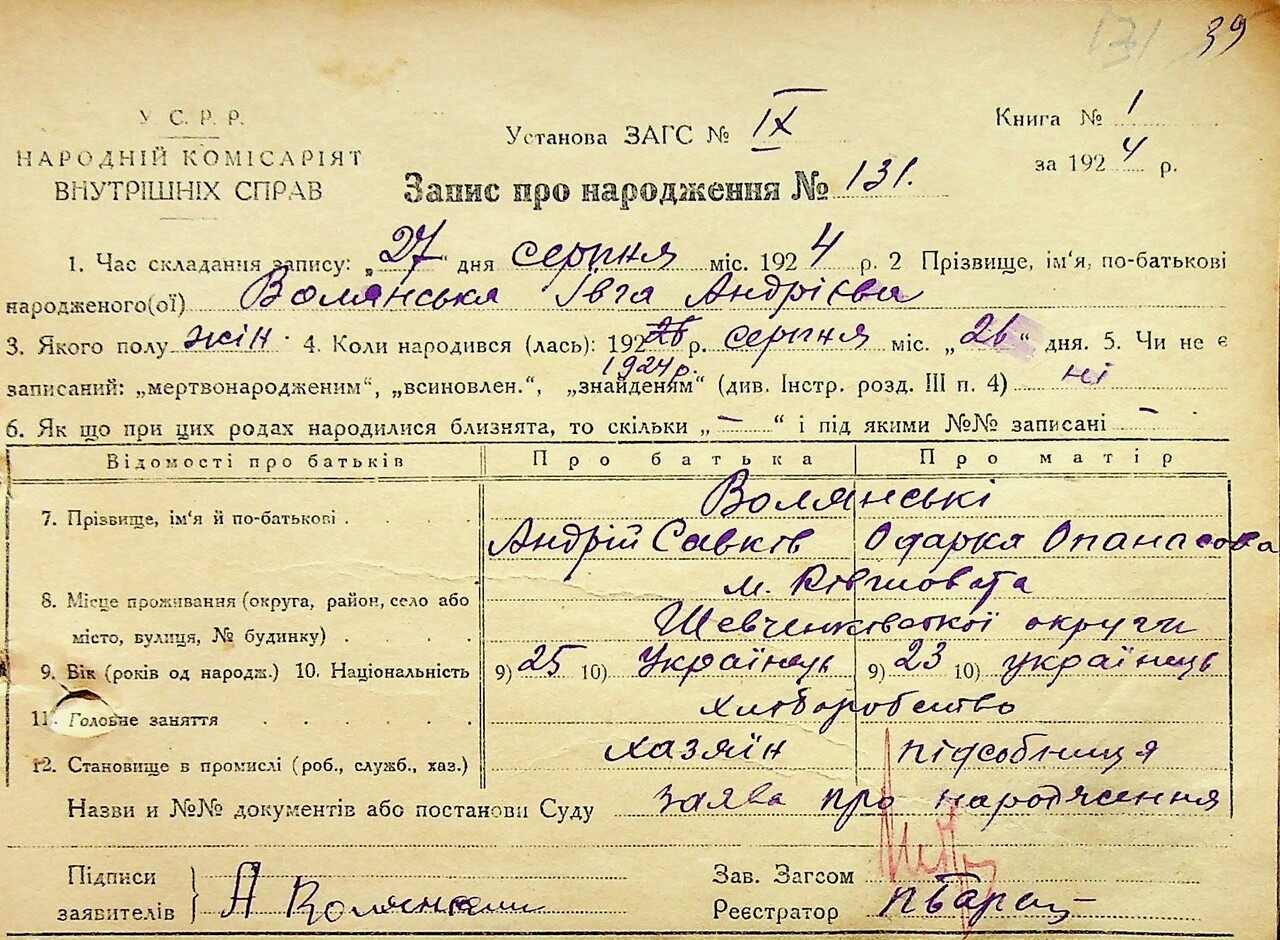 131 39
У. С. Р. Р.
НАРОДНІЙ КОМІСАРІЯТ
ВНУТРІШНІХ СПРАВ
Установа ЗАГС № IX
Книга № 1
за 1924 р.
Запис про народження № 131.
1. Час складання запису: „27“ дня серпня міс. 1924 р. 2 Прізвище, ім'я, по-батькові
народженого(ої) Волянська Івга Андрієва
3. Якого полу жін. 4. Коли народився (лась): 192 26 р. серпня міс. „26“ дня. 5. Чи не є
1924 р.
записаний: „мертвонародженим“, „всиновлен.“, „знайденим“ (див. Інстр. розд. III п. 4) ні
6. Як що при цих родах народилися близнята, то скільки „ – “ і під якими №№ записані –
Відомості про батьків Про батька Про матір
Волянські
7. Прізвище, ім'я й по-батькові . . . . Андрій Савків Одарка Опанасова
м. Ківшовата
8. Місце проживання (округа, район, село або
місто, вулиця, № будинку) . . . Шевченківської округи
9. Вік (років од народж.) 10. Національність 9) 25 10) Українець 9) 23 10) українець
11. Головне заняття . . . . . . хліборобство
12. Становище в промислі (роб., служб., хаз.) хазяїн підсобниця
Назви и №№ документів або постанови Суду заява про народження
Підписи
заявителів
А
Зав. Загсом
Реєстратор